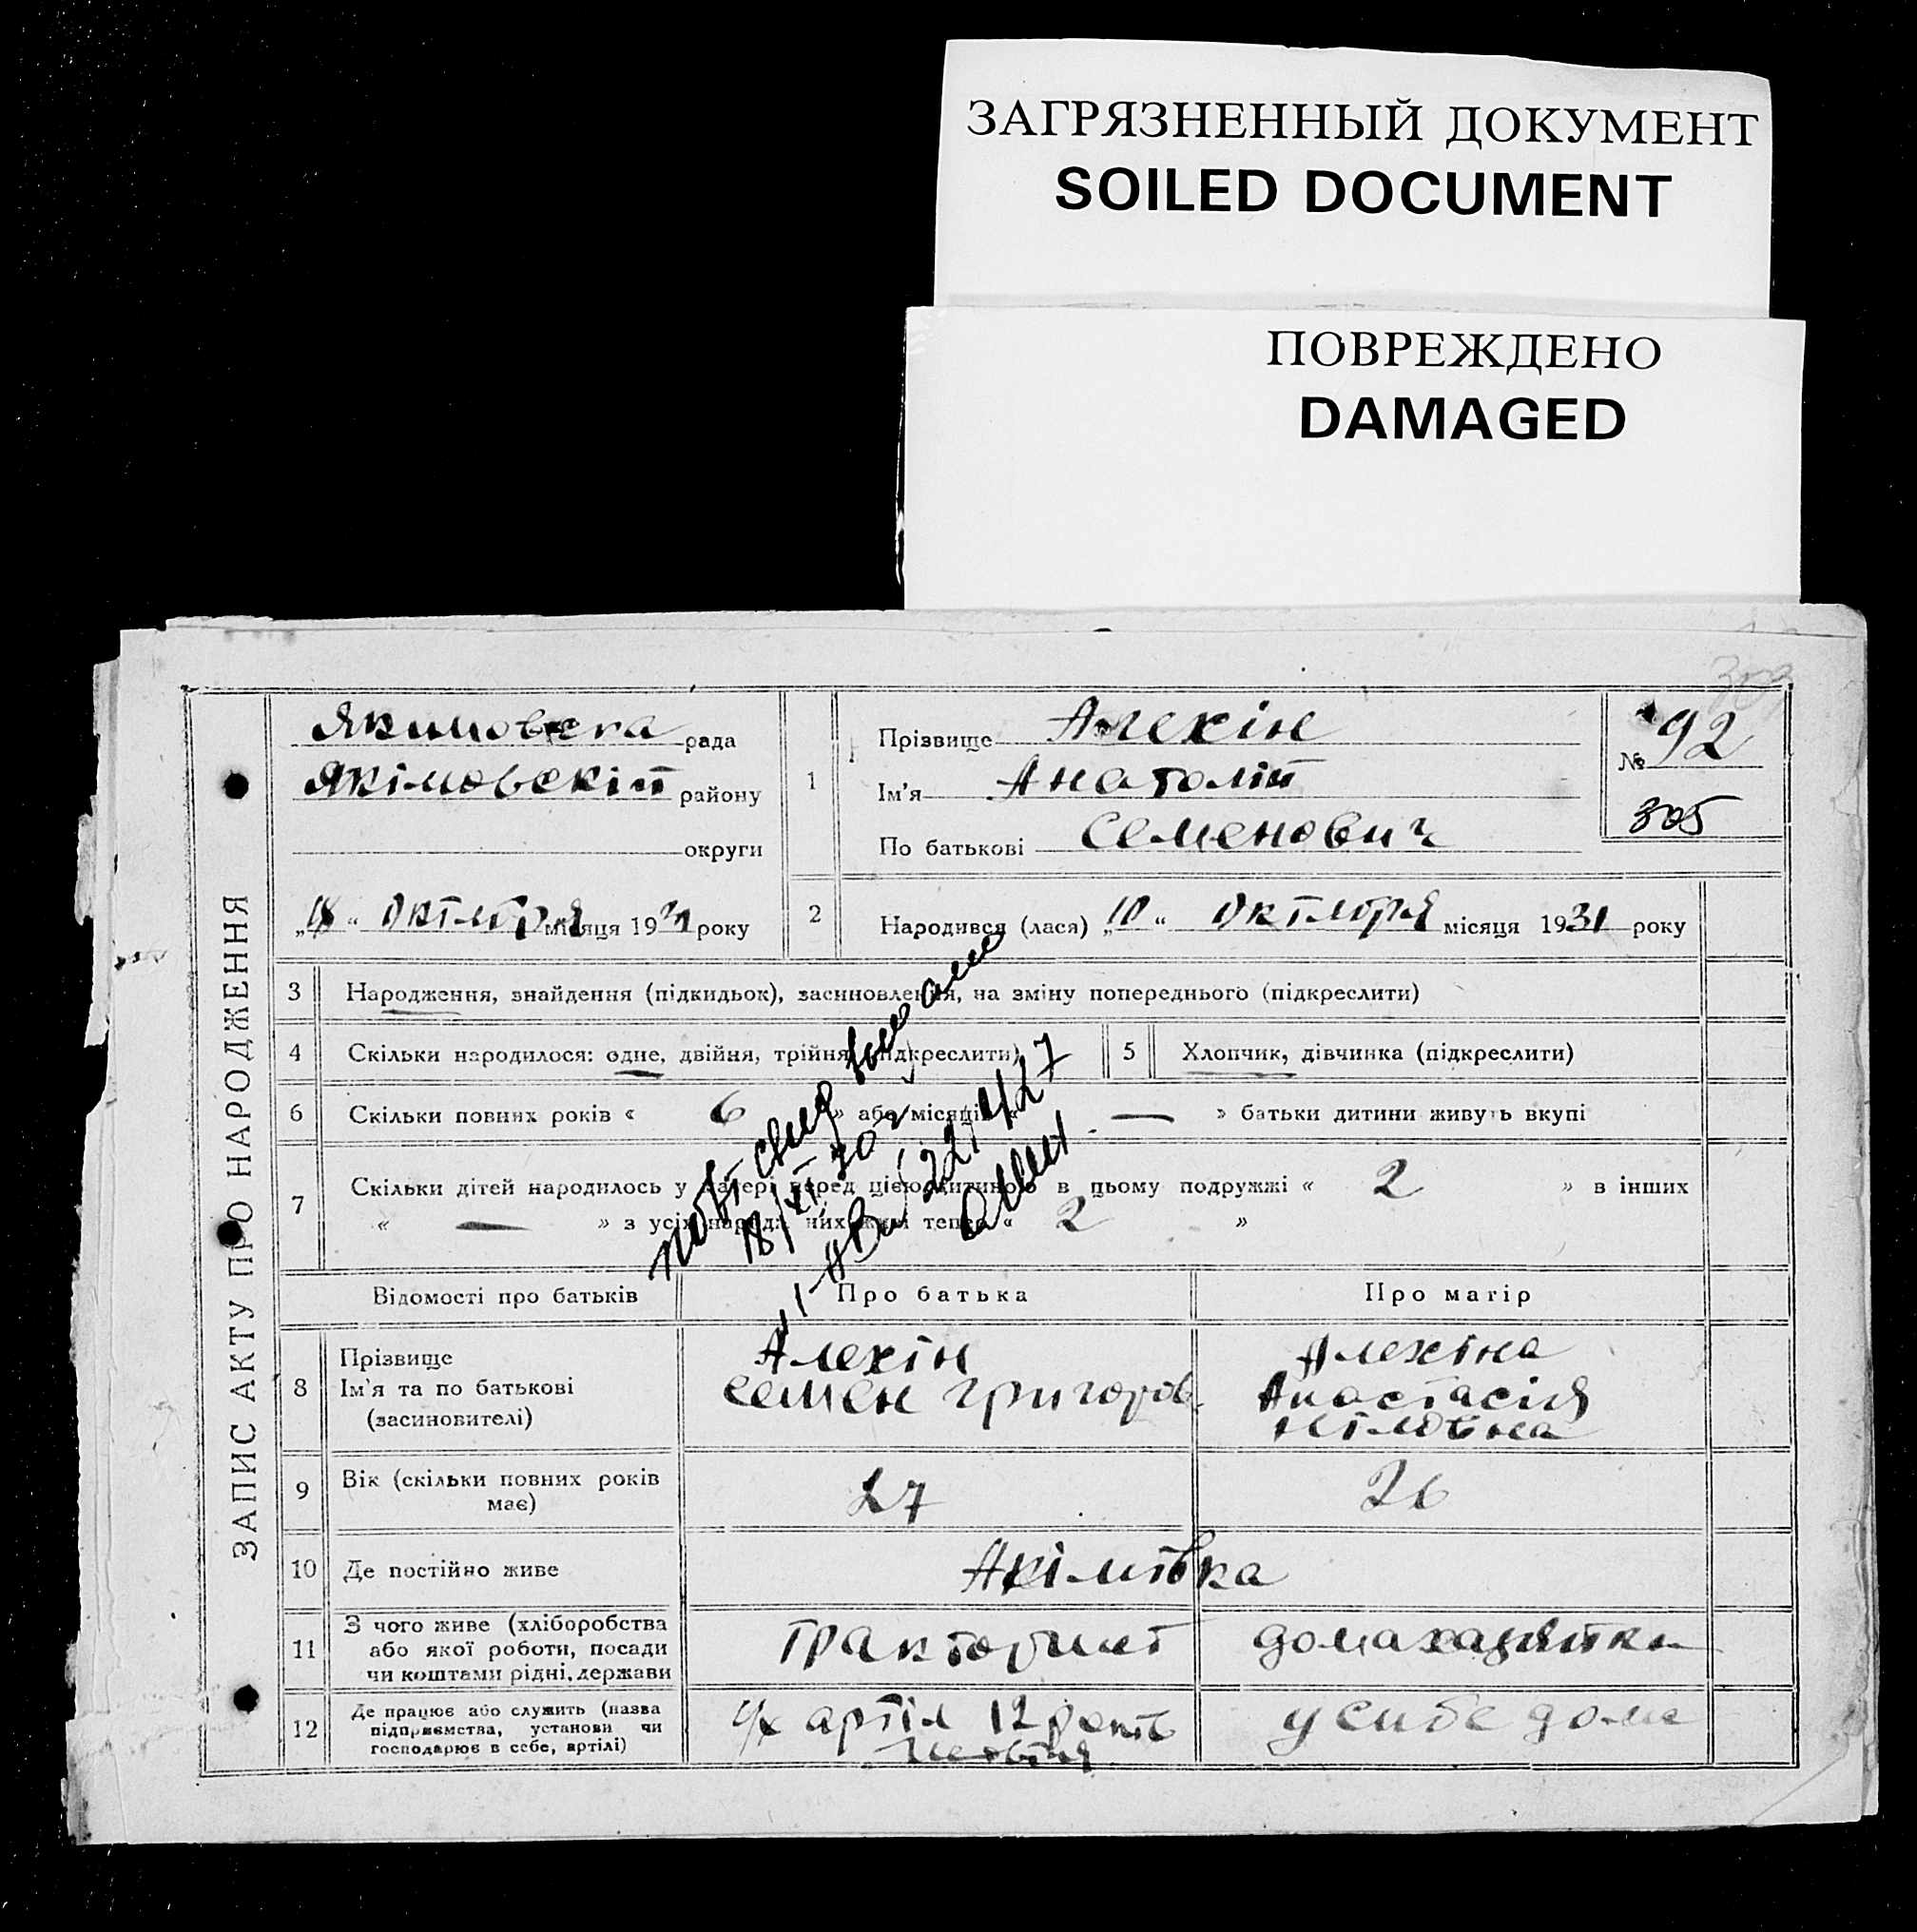 ЗАГРЯЗНЕННЫЙ ДОКУМЕНТ
SOILED DOCUMENT
ПОВРЕЖДЕНО
DAMAGED
303
ЗАПИС АКТУ ПРО НАРОДЖЕННЯ
Якимовска рада
Якімовский району
округи
„18“ Октября місяця 1931 року
1 Прізвище Алехін
Ім'я Анатолій
По батькові Семенович
№ 92
305
2 Народився (лася) „10“ Октября місяця 1931 року
3 Народження, знайдення (підкидьок), засиновлення, на зміну попереднього (підкреслити)
4 Скільки народилося: одне, двійня, трійня (підкреслити)
5 Хлопчик, дівчинка (підкреслити)
6 Скільки повних років « 6 » або місяців « — » батьки дитини живуть вкупі
7 Скільки дітей народилось у матері перед цією дитиною в цьому подружжі « 2 » в інших
« — » з усіх народж. них живі тепер « 2 »
повт свид
18/XI 70 г
Відомості про батьків Про батька Про матір
8 Прізвище
Ім'я та по батькові
(засиновителі)
Алехін
Семен Григоров
Алехіна
Анастасія
9 Вік (скільки повних років
має)
27
26
10 Де постійно живе
Акімівка
11 З чого живе (хліборобства
або якої роботи, посади
чи коштами рідні, держави
тракторист
домахазяйка
12 Де працює або служить (назва
підприємства, установи чи
господарює в себе, артілі)
с/х артіл 12 років
Жовтня
у сибе дома